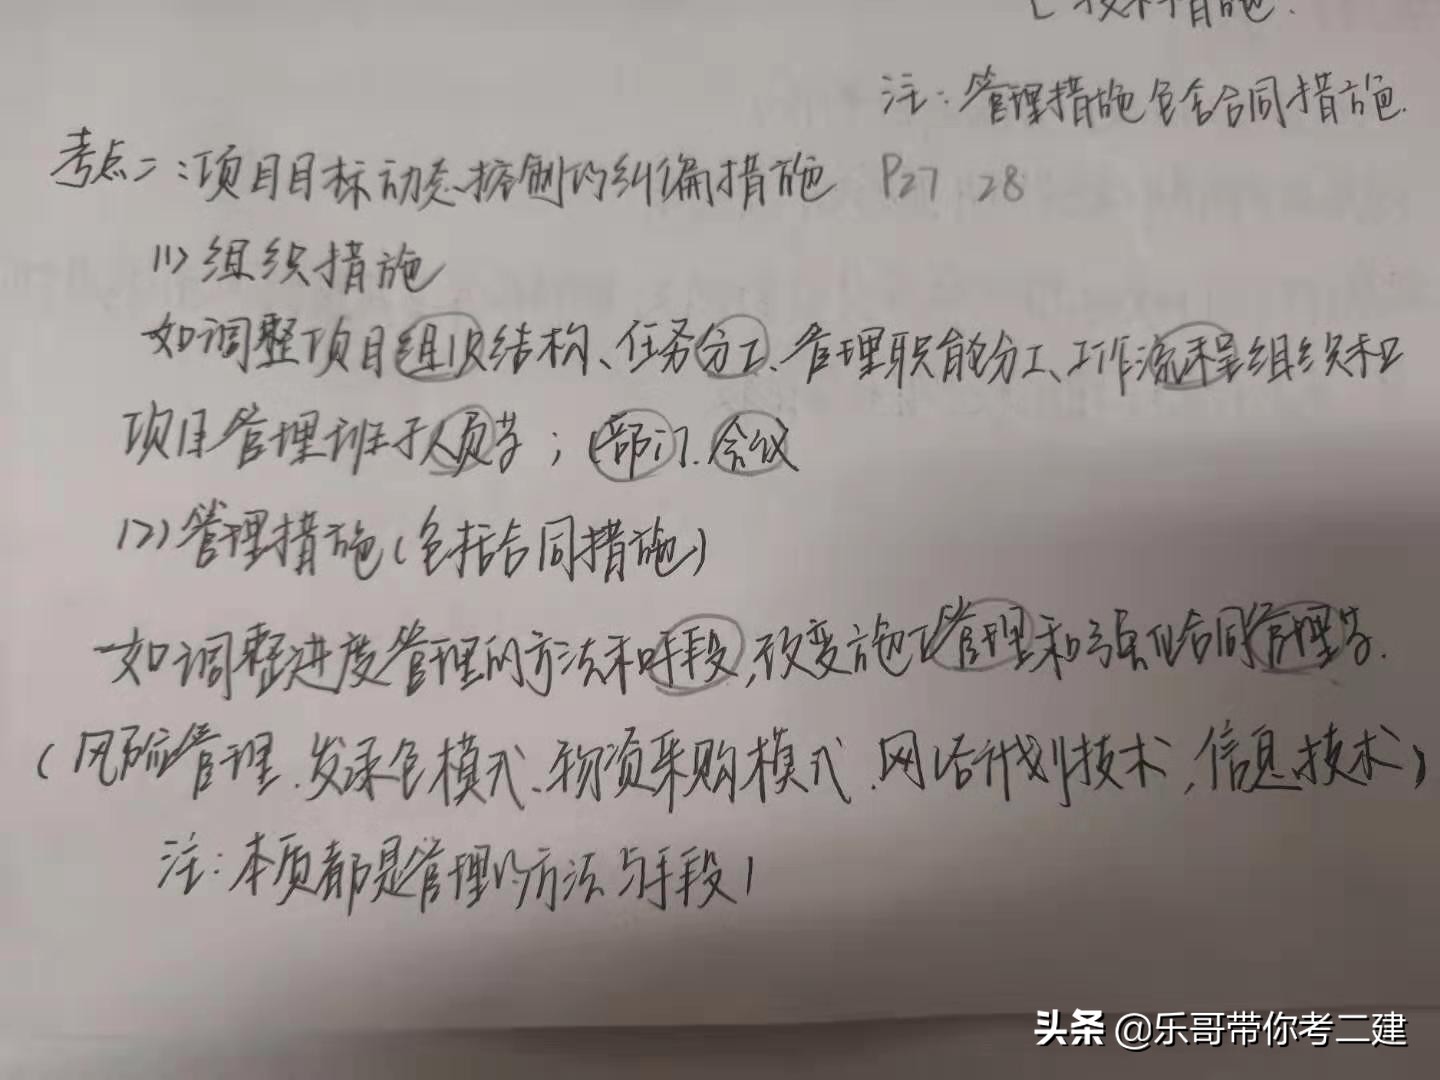 技术措施.
注：管理措施包含合同措施.
考点二：项目目标动态控制的纠偏措施 P27 28
(1)组织措施
如调整项目组织结构、任务分工、管理职能分工、工作流程组织和
项目管理班子人员等；(部门.会议
(2)管理措施(包括合同措施)
如调整进度管理的方法和手段,改变施工管理和强化合同管理等.
(风险管理.发承包模式、物资采购模式.网络计划技术,信息技术)
注：本质都是管理的方法与手段!
头条 @乐哥带你考二建